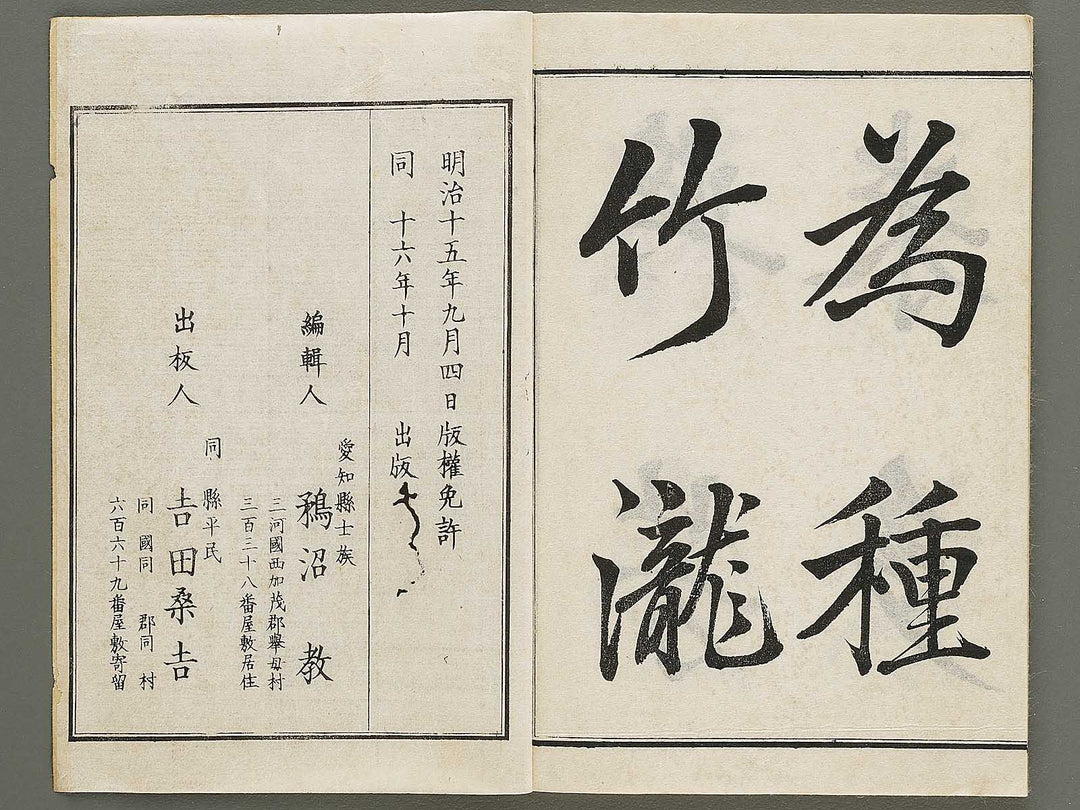 為種
竹瀧
明治十五年九月四日版權免許
同 十六年十月 出版
愛知縣士族
編輯人 鵜沼 教
三河國西加茂郡擧母村
三百三十八番屋敷居住
同 縣平民
出板人 𠮷田桑𠮷
同 國同 郡同 村
六百六十九番屋敷寄留